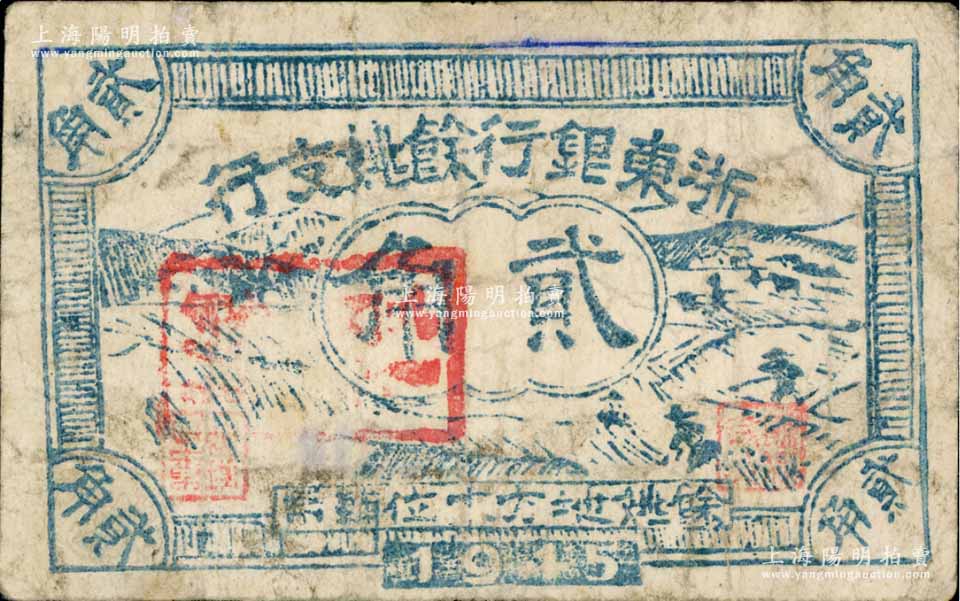 上海陽明拍賣
www.yangmingauction.com
貳角
貳角
浙東銀行餘姚支行
貳角
上海陽明拍賣
www.yangmingauction.com
貳角
貳角
餘姚地方本位輔幣
1945
上海陽明拍賣
www.yangmingauction.com